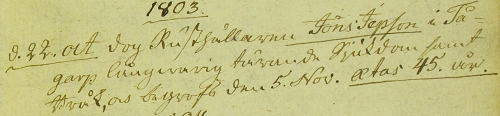 1803.
d. 22. oct dog Rusthållaren Jöns Jepson i Tå-
garp långwarig tärande Siukdom samt
Bråk, as begrofs den 5. Nov. ætas 45. år.